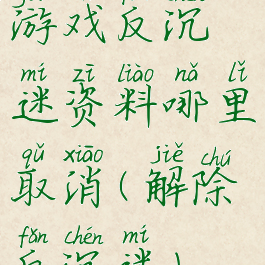 游戏反沉
mí zī liào nǎ lǐ
迷资料哪里
qǔ xiāo jiě chú
取消(解除
fǎn chén mí
反沉迷)